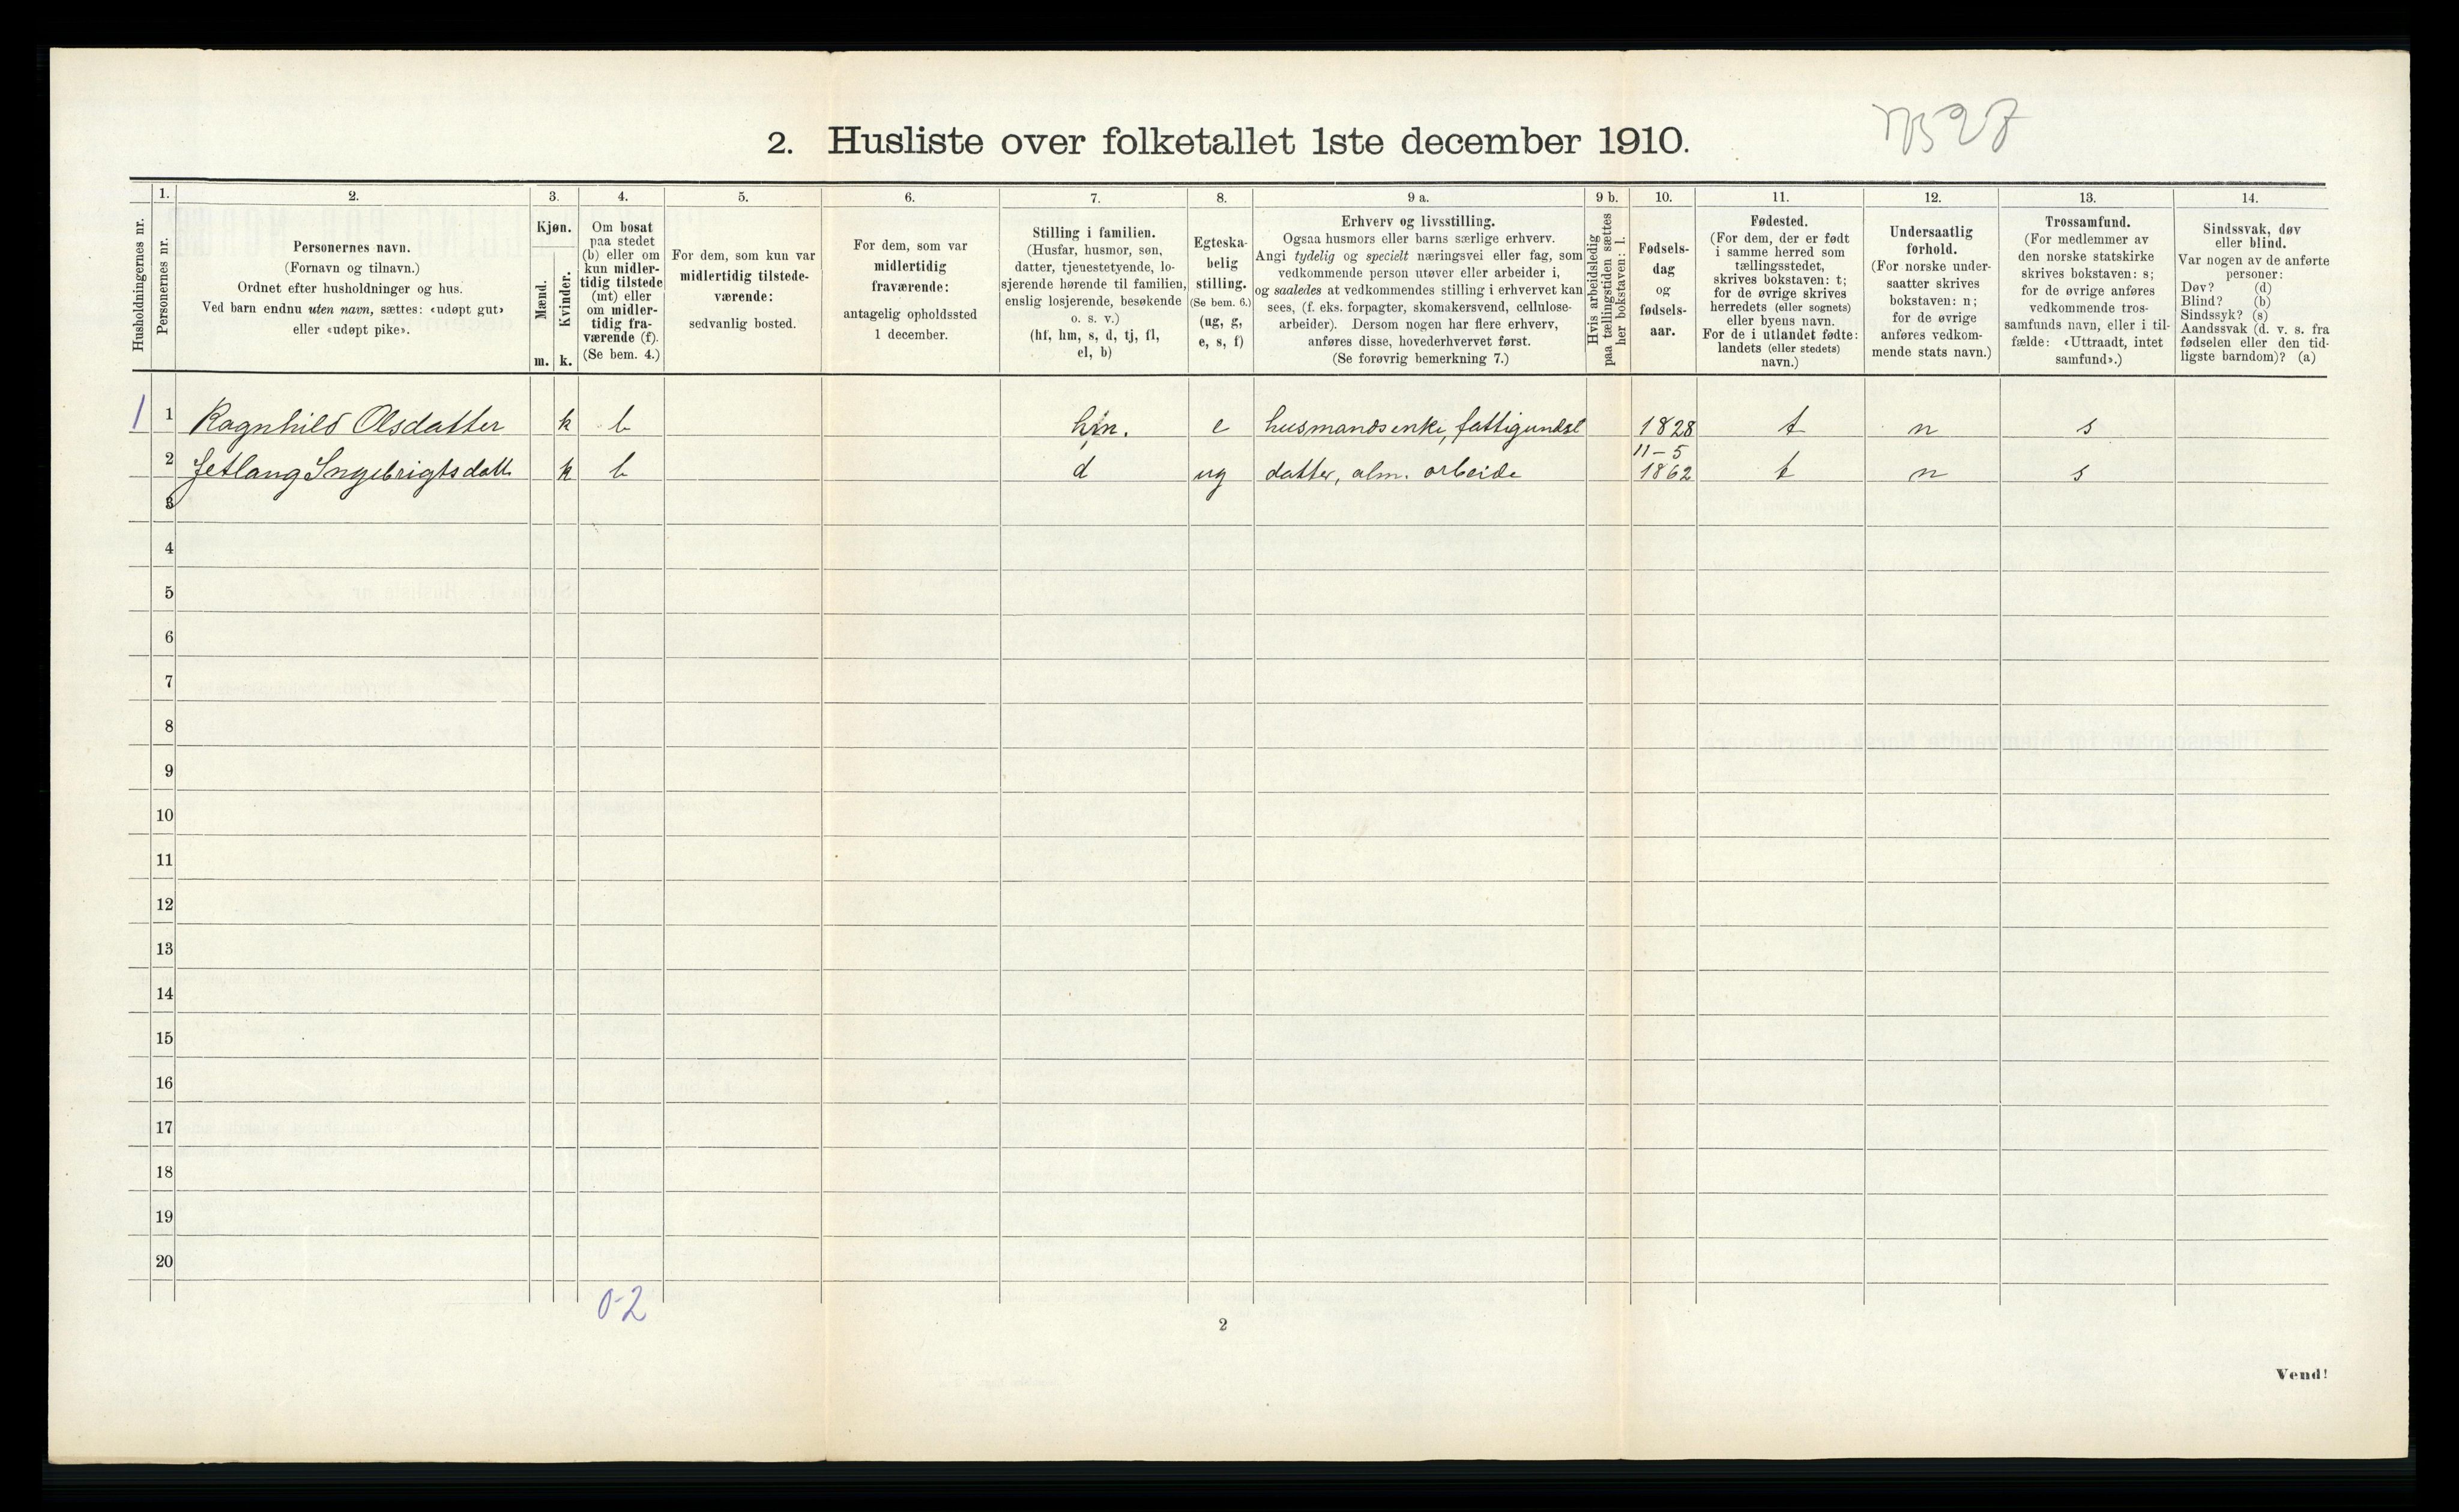 2. Husliste over folketallet 1ste december 1910.
1. 2. 3. 4. 5. 6. 7. 8. 9 a. 9 b. 10. 11. 12. 13. 14.
Husholdningernes nr.
Personernes nr.
Personernes navn.
(Fornavn og tilnavn.)
Ordnet efter husholdninger og hus.
Ved barn endnu uten navn, sættes: «udøpt gut»
eller «udøpt pike».
Kjøn.
Mænd.
Kvinder.
m. k.
Om bosat
paa stedet
(b) eller om
kun midler-
tidig tilstede
(mt) eller
om midler-
tidig fra-
værende (f).
(Se bem. 4.)
For dem, som kun var
midlertidig tilstede-
værende:
sedvanlig bosted.
For dem, som var
midlertidig
fraværende:
antagelig opholdssted
1 december.
Stilling i familien.
(Husfar, husmor, søn,
datter, tjenestetyende, lo-
sjerende hørende til familien,
enslig losjerende, besøkende
o. s. v.)
(hf, hm, s, d, tj, fl,
el, b)
Egteska-
belig
stilling.
(Se bem. 6.)
(ug, g,
e, s, f)
Erhverv og livsstilling.
Ogsaa husmors eller barns særlige erhverv.
Angi tydelig og specielt næringsvei eller fag, som
vedkommende person utøver eller arbeider i,
og saaledes at vedkommendes stilling i erhvervet kan
sees, (f. eks. forpagter, skomakersvend, cellulose-
arbeider). Dersom nogen har flere erhverv,
anføres disse, hovederhvervet først.
(Se forøvrig bemerkning 7.)
Hvis arbeidsledig
paa tællingstiden sættes
her bokstaven: l.
Fødsels-
dag
og
fødsels-
aar.
Fødested.
(For dem, der er født
i samme herred som
tællingsstedet,
skrives bokstaven: t;
for de øvrige skrives
herredets (eller sognets)
eller byens navn.
For de i utlandet fødte:
landets (eller stedets)
navn.)
Undersaatlig
forhold.
(For norske under-
saatter skrives
bokstaven: n;
for de øvrige
anføres vedkom-
mende stats navn.)
Trossamfund.
(For medlemmer av
den norske statskirke
skrives bokstaven: s;
for de øvrige anføres
vedkommende tros-
samfunds navn, eller i til-
fælde: «Uttraadt, intet
samfund».)
Sindssvak, døv
eller blind.
Var nogen av de anførte
personer:
Døv? (d)
Blind? (b)
Sindssyk? (s)
Aandssvak (d. v. s. fra
fødselen eller den tid-
ligste barndom)? (a)
1 1 Ragnhild Olsdatter k b hm. e husmandsenke, fattigundst 1828 t n s
11-5
2 Jetlaug Ingebrigtsdatt. k b d ug datter, alm. arbeide 1862 t n s
3
4
5
6
7
8
9
10
11
12
13
14
15
16
17
18
19
20
0-2
2
Vend!